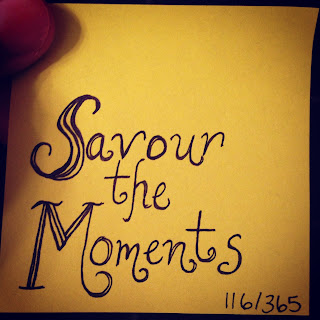 Savour
the
Moments
116/365